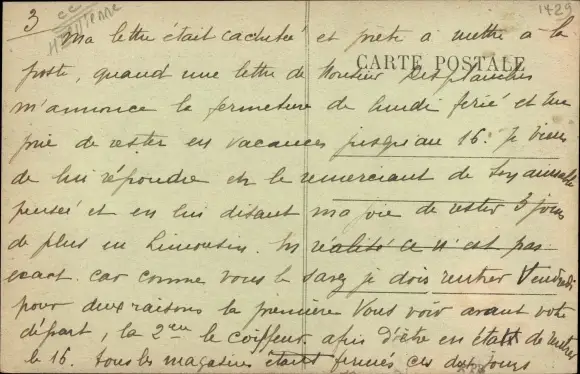 3
1429
CARTE POSTALE
Ma lettre était cachetée et prête à mettre à la
poste, quand une lettre de Monsieur Desplanches
m'annonce la fermeture de lundi férié et me
prie de rester en vacances jusqu'au 16. Je viens
de lui répondre en le remerciant de son aimable
pensée et en lui disant ma joie de rester 3 jours
de plus en Limousin. En réalité ce n'est pas
exact. car comme vous le savez je dois rentrer Vendredi
pour deux raisons la première Vous voir avant votre
départ, la 2me le coiffeur afin d'être en état de rentrer
le 16. tous les magasins étant fermés ces deux jours